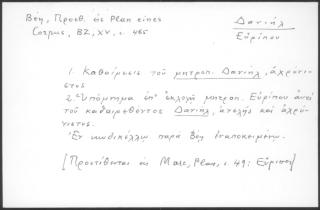 Βέη, Προσθ. εἰς Plan eines
Corpus, BZ, XV, σ. 485
Δανιήλ
Εὐρίπου
1. Καθαίρεσις τοῦ μητροπ. Δανιήλ, ἀχρόνι-
στος
2. Ὑπόμνημα ἐπ' ἐκλογῇ μητροπ. Εὐρίπου ἀντί
τοῦ καθαιρεθέντος Δανιήλ, ἀτελής καί ἀχρό-
νιστος.
Ἐν κωδικέλλῳ παρά Βέῃ ἐναποκειμένῳ.
[Προστίθεται εἰς Marc, Plan, σ. 49: Εὔριπος]